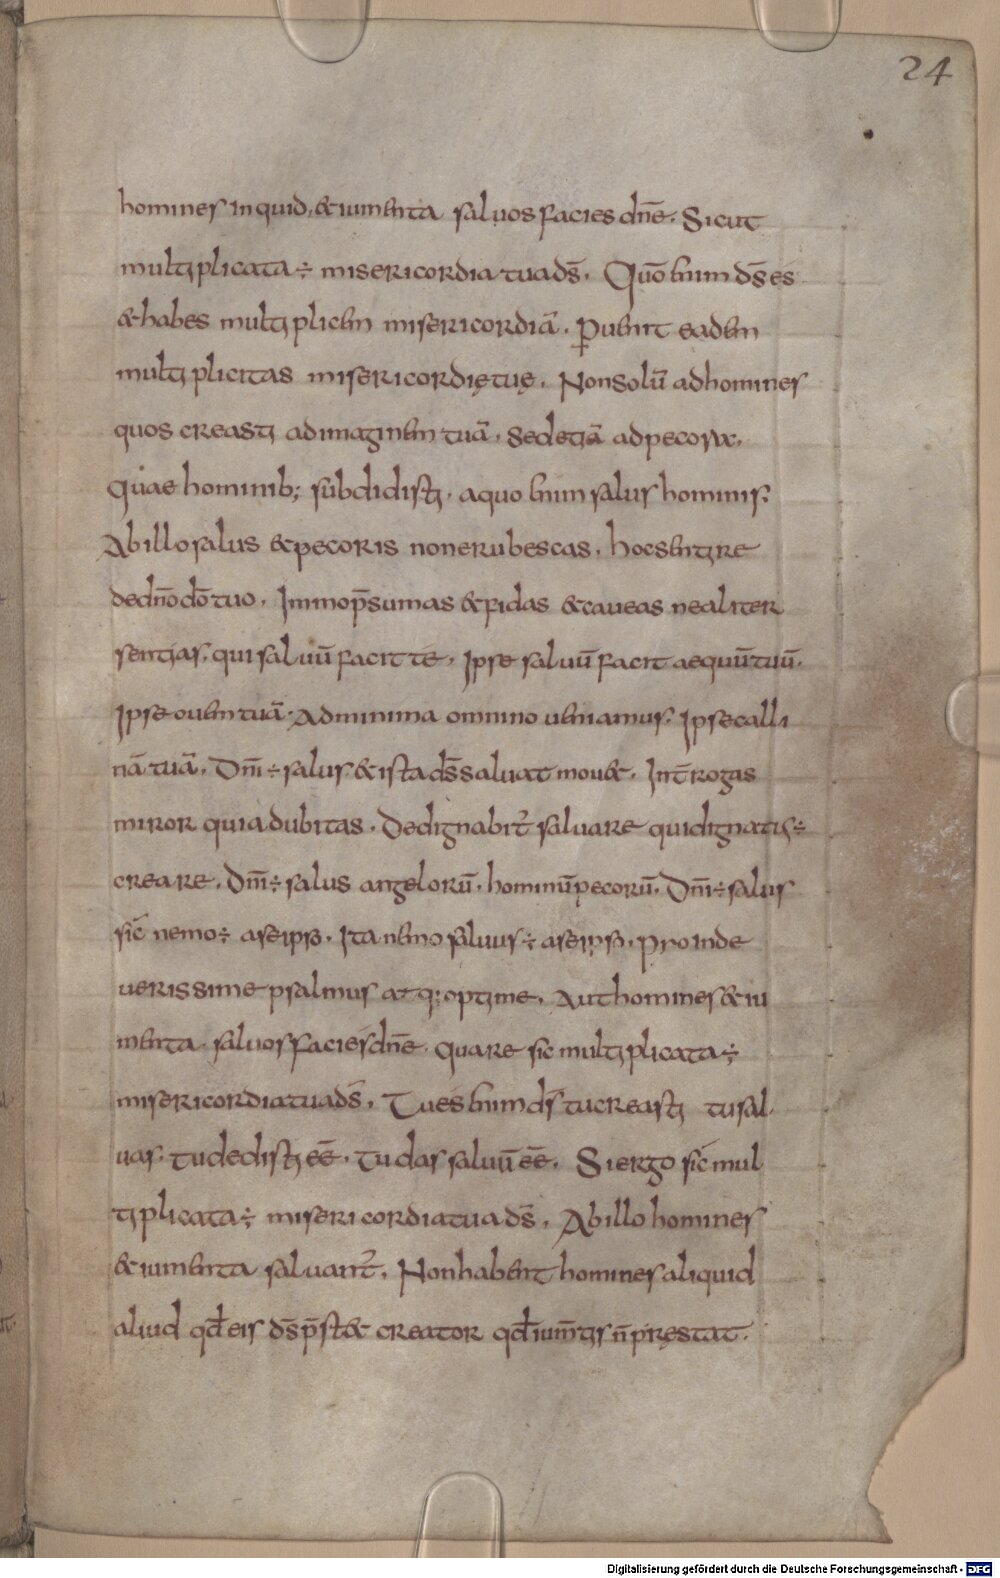 24
homines inquid, & iumenta saluos facies dn̄e. Sicut
multiplicata ÷ misericordia tua d̄s. Quō enim d̄s es
& habes multiplicem misericordiā. ꝑuenit eadem
multiplicitas misericordię tuę. Non solū ad homines
quos creasti ad imaginem tuā. sed etiā ad pecora.
Quae hominib; subdidisti. a quo enim salus hominis?
Ab illo salus & pecoris non erubescas. hoc sentire
de dn̄o dō tuo. Immo p̄sumas & fidas & caueas ne aliter
sentias. qui saluū facit te. Ipse saluū facit aequū tuū.
Ipse ouem tuā. Ad minima omnino ueniamus. Ipse calli
nā tuā. Dn̄i ÷ salus & ista d̄s saluat mou&. Int̄rogas
miror quia dubitas. Dedignabit̄ saluare qui dignatus ÷
creare. Dn̄i ÷ salus angelorū. hominū pecorū. Dn̄i ÷ salus
sic nemo ÷ a se ipso. Ita nemo saluus ÷ a se ipso. proinde
uerissime psalmus atq; optime. Aut homines & iu
menta saluos facies dn̄e. quare sic multiplicata ÷
misericordia tua d̄s. Tu es enim d̄s tu creasti tu sal
uas. tu dedisti eē. tu das saluū eē. Si ergo sic mul
tiplicata ÷ misericordia tua d̄s. Ab illo homines
& iumenta saluant̄. Non habent homines aliquid
aliud qđ eis d̄s p̄st& creator qđ ium̄tis n̄ pręstat.
Digitalisierung gefördert durch die Deutsche Forschungsgemeinschaft - DFG